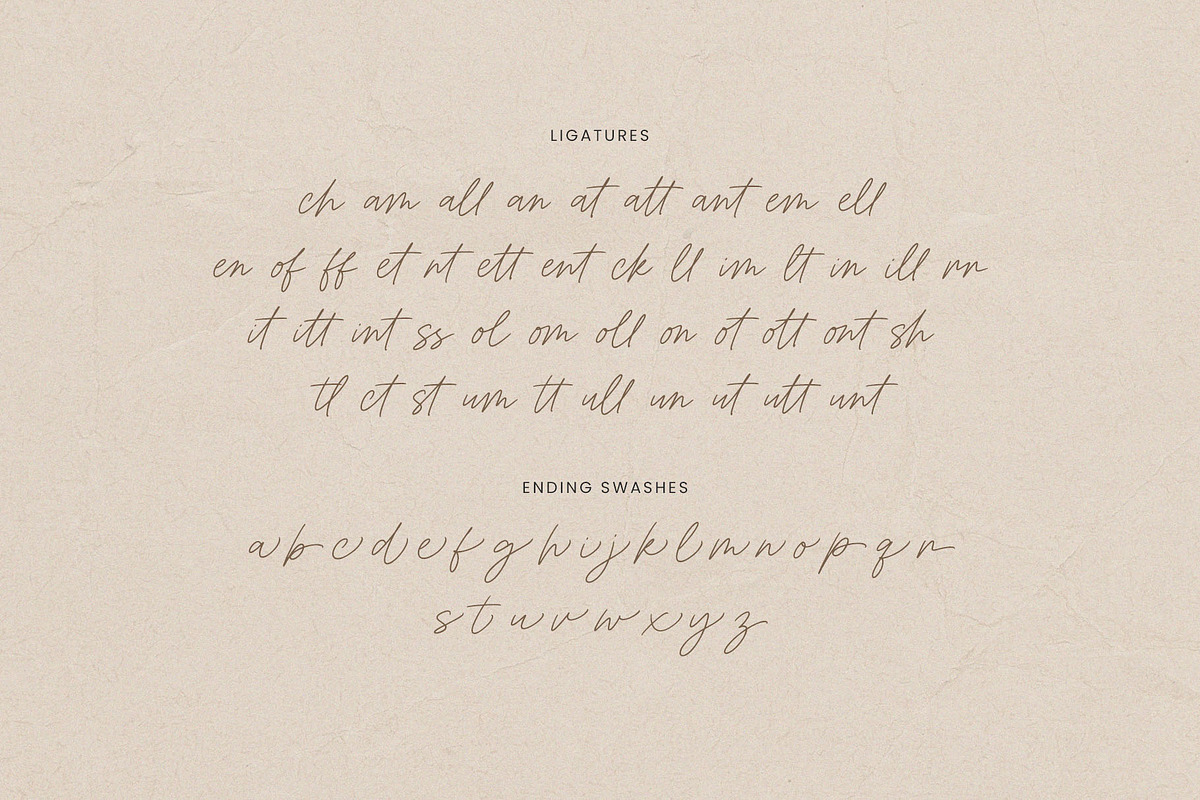 LIGATURES
ch am all an at att ant em ell
en of ff et nt ett ent ck ll im lt in ill rr
it itt int ss ol om oll on ot ott ont sh
tl ct st um tt ull un ut utt unt
ENDING SWASHES
a b c d e f g h i j k l m n o p q r
s t u v w x y z